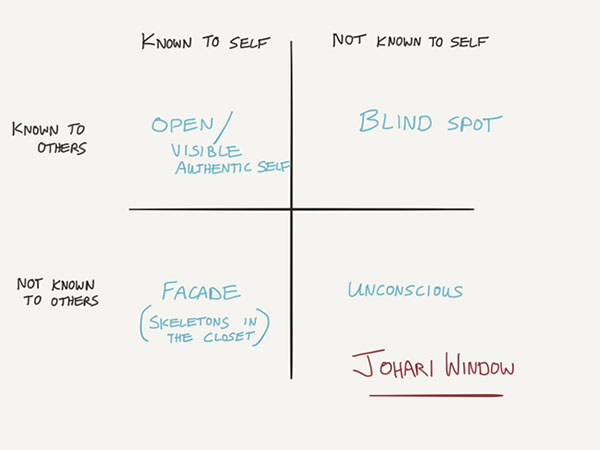 KNOWN TO SELF
NOT KNOWN TO SELF
KNOWN TO
OTHERS
OPEN/
VISIBLE
AUTHENTIC SELF
BLIND SPOT
NOT KNOWN
TO OTHERS
FACADE
(SKELETONS IN
THE CLOSET)
UNCONSCIOUS
JOHARI WINDOW